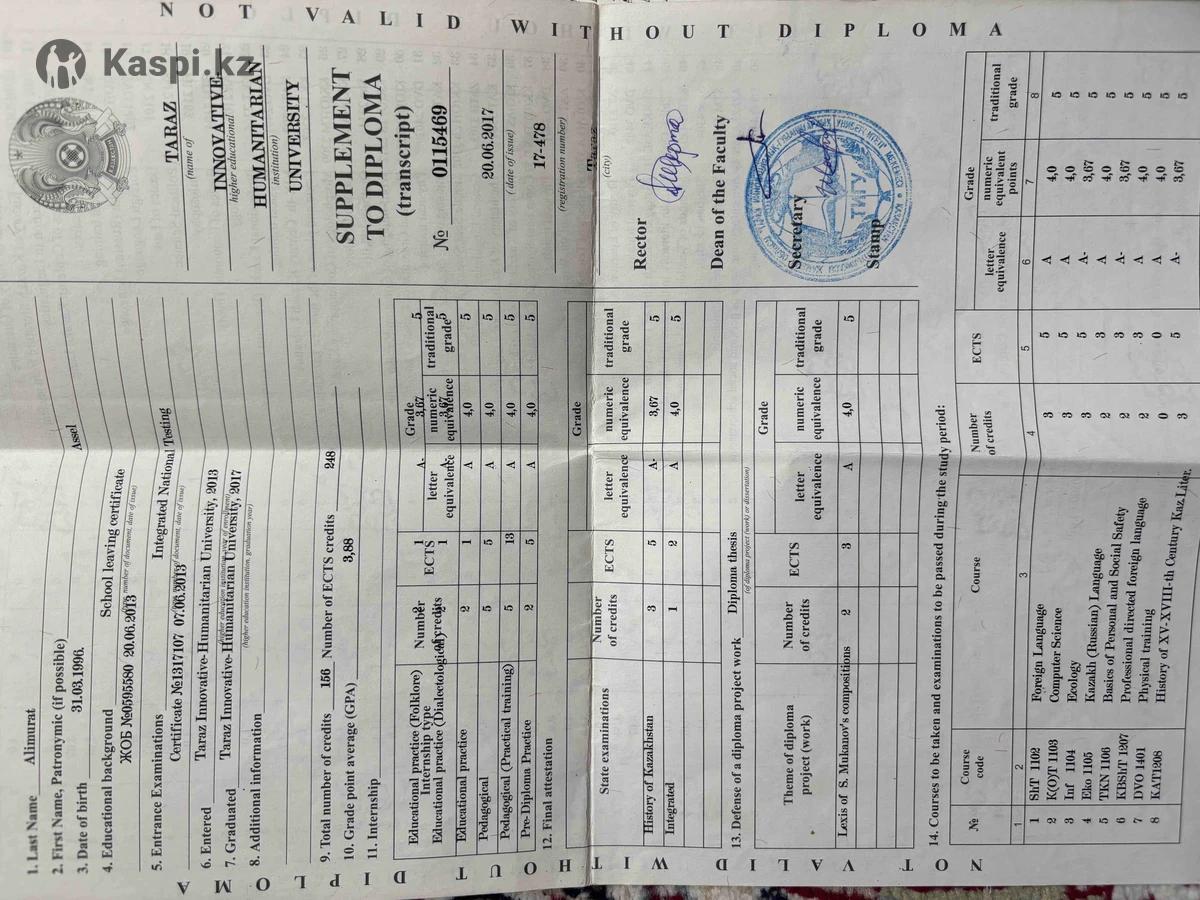 Kaspi.kz
NOT VALID WITHOUT DIPLOMA
1. Last Name Alimurat
2. First Name, Patronymic (if possible) Assel
3. Date of birth 31.03.1996.
4. Educational background School leaving certificate
ЖОБ №0595580 20.06.2013
(type, number of document, date of issue)
5. Entrance Examinations Integrated National Testing
Certificate №1317107 07.06.2013
6. Entered Taraz Innovative-Humanitarian University, 2013
7. Graduated Taraz Innovative-Humanitarian University, 2017
(higher education institution, graduation year)
8. Additional information
9. Total number of credits 156 Number of ECTS credits 248
10. Grade point average (GPA) 3,88
11. Internship
Internship type
Number of credits
ECTS
Grade
letter equivalence
numeric equivalence
traditional grade
Educational practice (Folklore) 2 1 A- 3,67 5
Educational practice (Dialectological) 2 1 A- 3,67 5
Educational practice 2 1 A 4,0 5
Pedagogical 5 5 A 4,0 5
Pedagogical (Practical training) 5 13 A 4,0 5
Pre-Diploma Practice 2 5 A 4,0 5
12. Final attestation
State examinations
Number of credits
ECTS
Grade
letter equivalence
numeric equivalence
traditional grade
History of Kazakhstan 3 5 A- 3,67 5
Integrated 1 2 A 4,0 5
13. Defense of a diploma project work Diploma thesis
(of diploma project (work) or dissertation)
Theme of diploma project (work)
Number of credits
ECTS
Grade
letter equivalence
numeric equivalence
traditional grade
Lexis of S. Mukanov's compositions 2 3 A 4,0 5
TARAZ
(name of
INNOVATIVE-
higher educational
HUMANITARIAN
institution)
UNIVERSITY
SUPPLEMENT
TO DIPLOMA
(transcript)
№ 0115469
20.06.2017
(date of issue)
17-478
(registration number)
Taraz
(city)
Rector
Dean of the Faculty
Secretary
Stamp
ТИГУ
14. Courses to be taken and examinations to be passed during the study period:
№
Course code
Course
Number of credits
ECTS
Grade
letter equivalence
numeric equivalent points
traditional grade
1 2 3 4 5 6 7 8
1 ShT 1102 Foreign Language 3 5 A 4,0 5
2 K(O)T 1103 Computer Science 3 5 A 4,0 5
3 Inf 1104 Ecology 3 5 A- 3,67 5
4 Eko 1105 Kazakh (Russian) Language 2 3 A 4,0 5
5 TKN 1106 Basics of Personal and Social Safety 2 3 A- 3,67 5
6 KBShT 1207 Professional directed foreign language 2 3 A 4,0 5
7 DVO 1401 Physical training 0 0 A 4,0 5
8 KAT1208 History of XV-XVIII-th Century Kaz.Liter. 3 5 A- 3,67 5
NOT VALID WITHOUT DIPLOMA